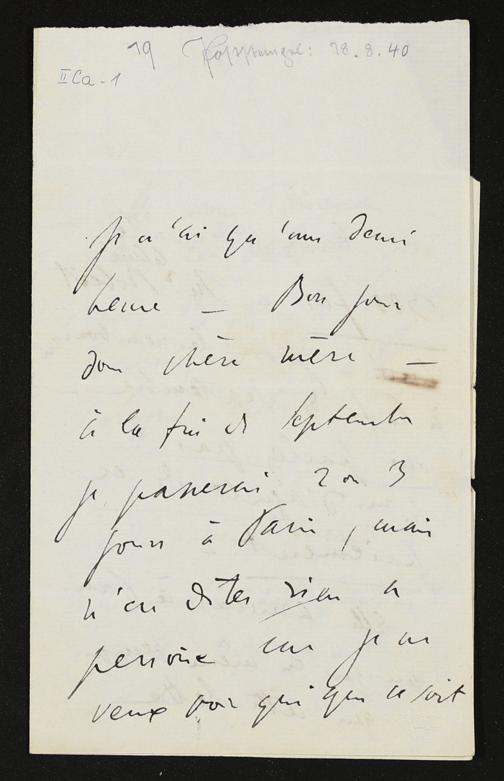 19 Poststempel: 28.8.40
II Ca-1
Je n'ai qu'une demi
heure — Bon jour
donc chère mère —
à la fin de Septembre
je passerai 2 ou 3
jours à Paris, mais
n'en dites rien à
personne car je ne
veux voir qui que ce soit